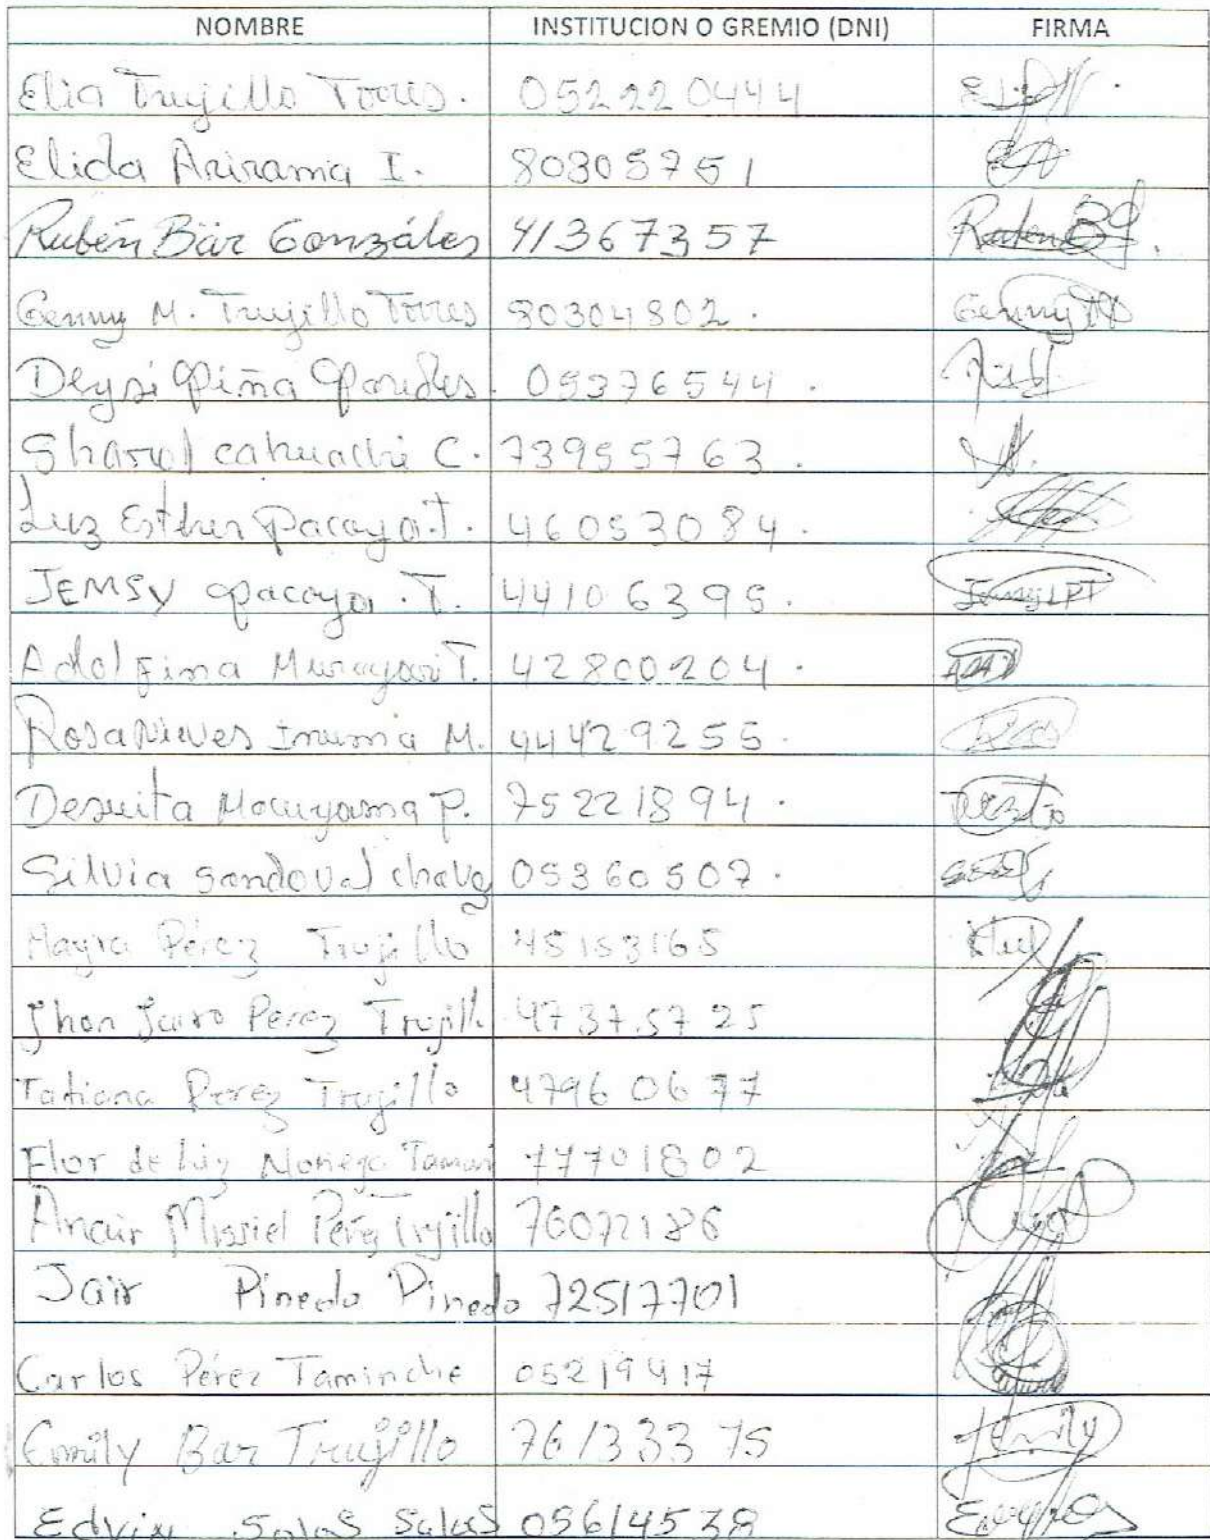 NOMBRE INSTITUCION O GREMIO (DNI) FIRMA
Elia Trujillo Torres. 052220444
Elida Arirama I. 80305751
Rubén Bär Gonzáles 41367357 Ruben BG.
Genny M. Trujillo Torres 80304802. Genny
Deysi Piña Paredes. 05376544.
Sharol cahuachi C. 73955763.
Luz Esther Pacaya T. 46053084.
JEMSY Pacaya. T. 44106395.
Adolfina Murayari T. 42800204.
Rosa Nieves Inuma M. 44429255. Rosa
Desuita Mouyama P. 75221894.
Silvia Sandoval chavez 05360507.
Mayra Pérez Trujillo 45153165
Jhon Jairo Perez Trujill 47375725
Tatiana Perez Trujillo 47960677
Flor de Luz Noriega Tamani 77701802
Ancir Missiel Perez Trujillo 76072186
Jair Pinedo Pinedo 72517701
Carlos Pérez Taminche 05219417
Emily Bar Trujillo 76133375 Emily
Edvin Salas Salas 05614538